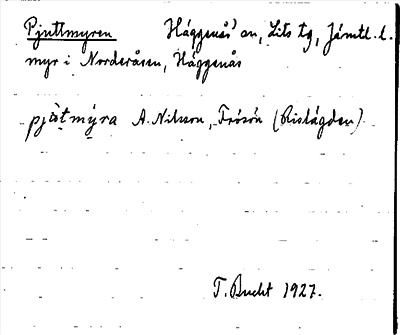 Pjuttmyren Häggenås sn, Lits tg, Jämtl. l.
myr i Norderåsen, Häggenås
pjùtmýra A. Nilsson, Frösön (Rislägden)
T. Bucht 1927.